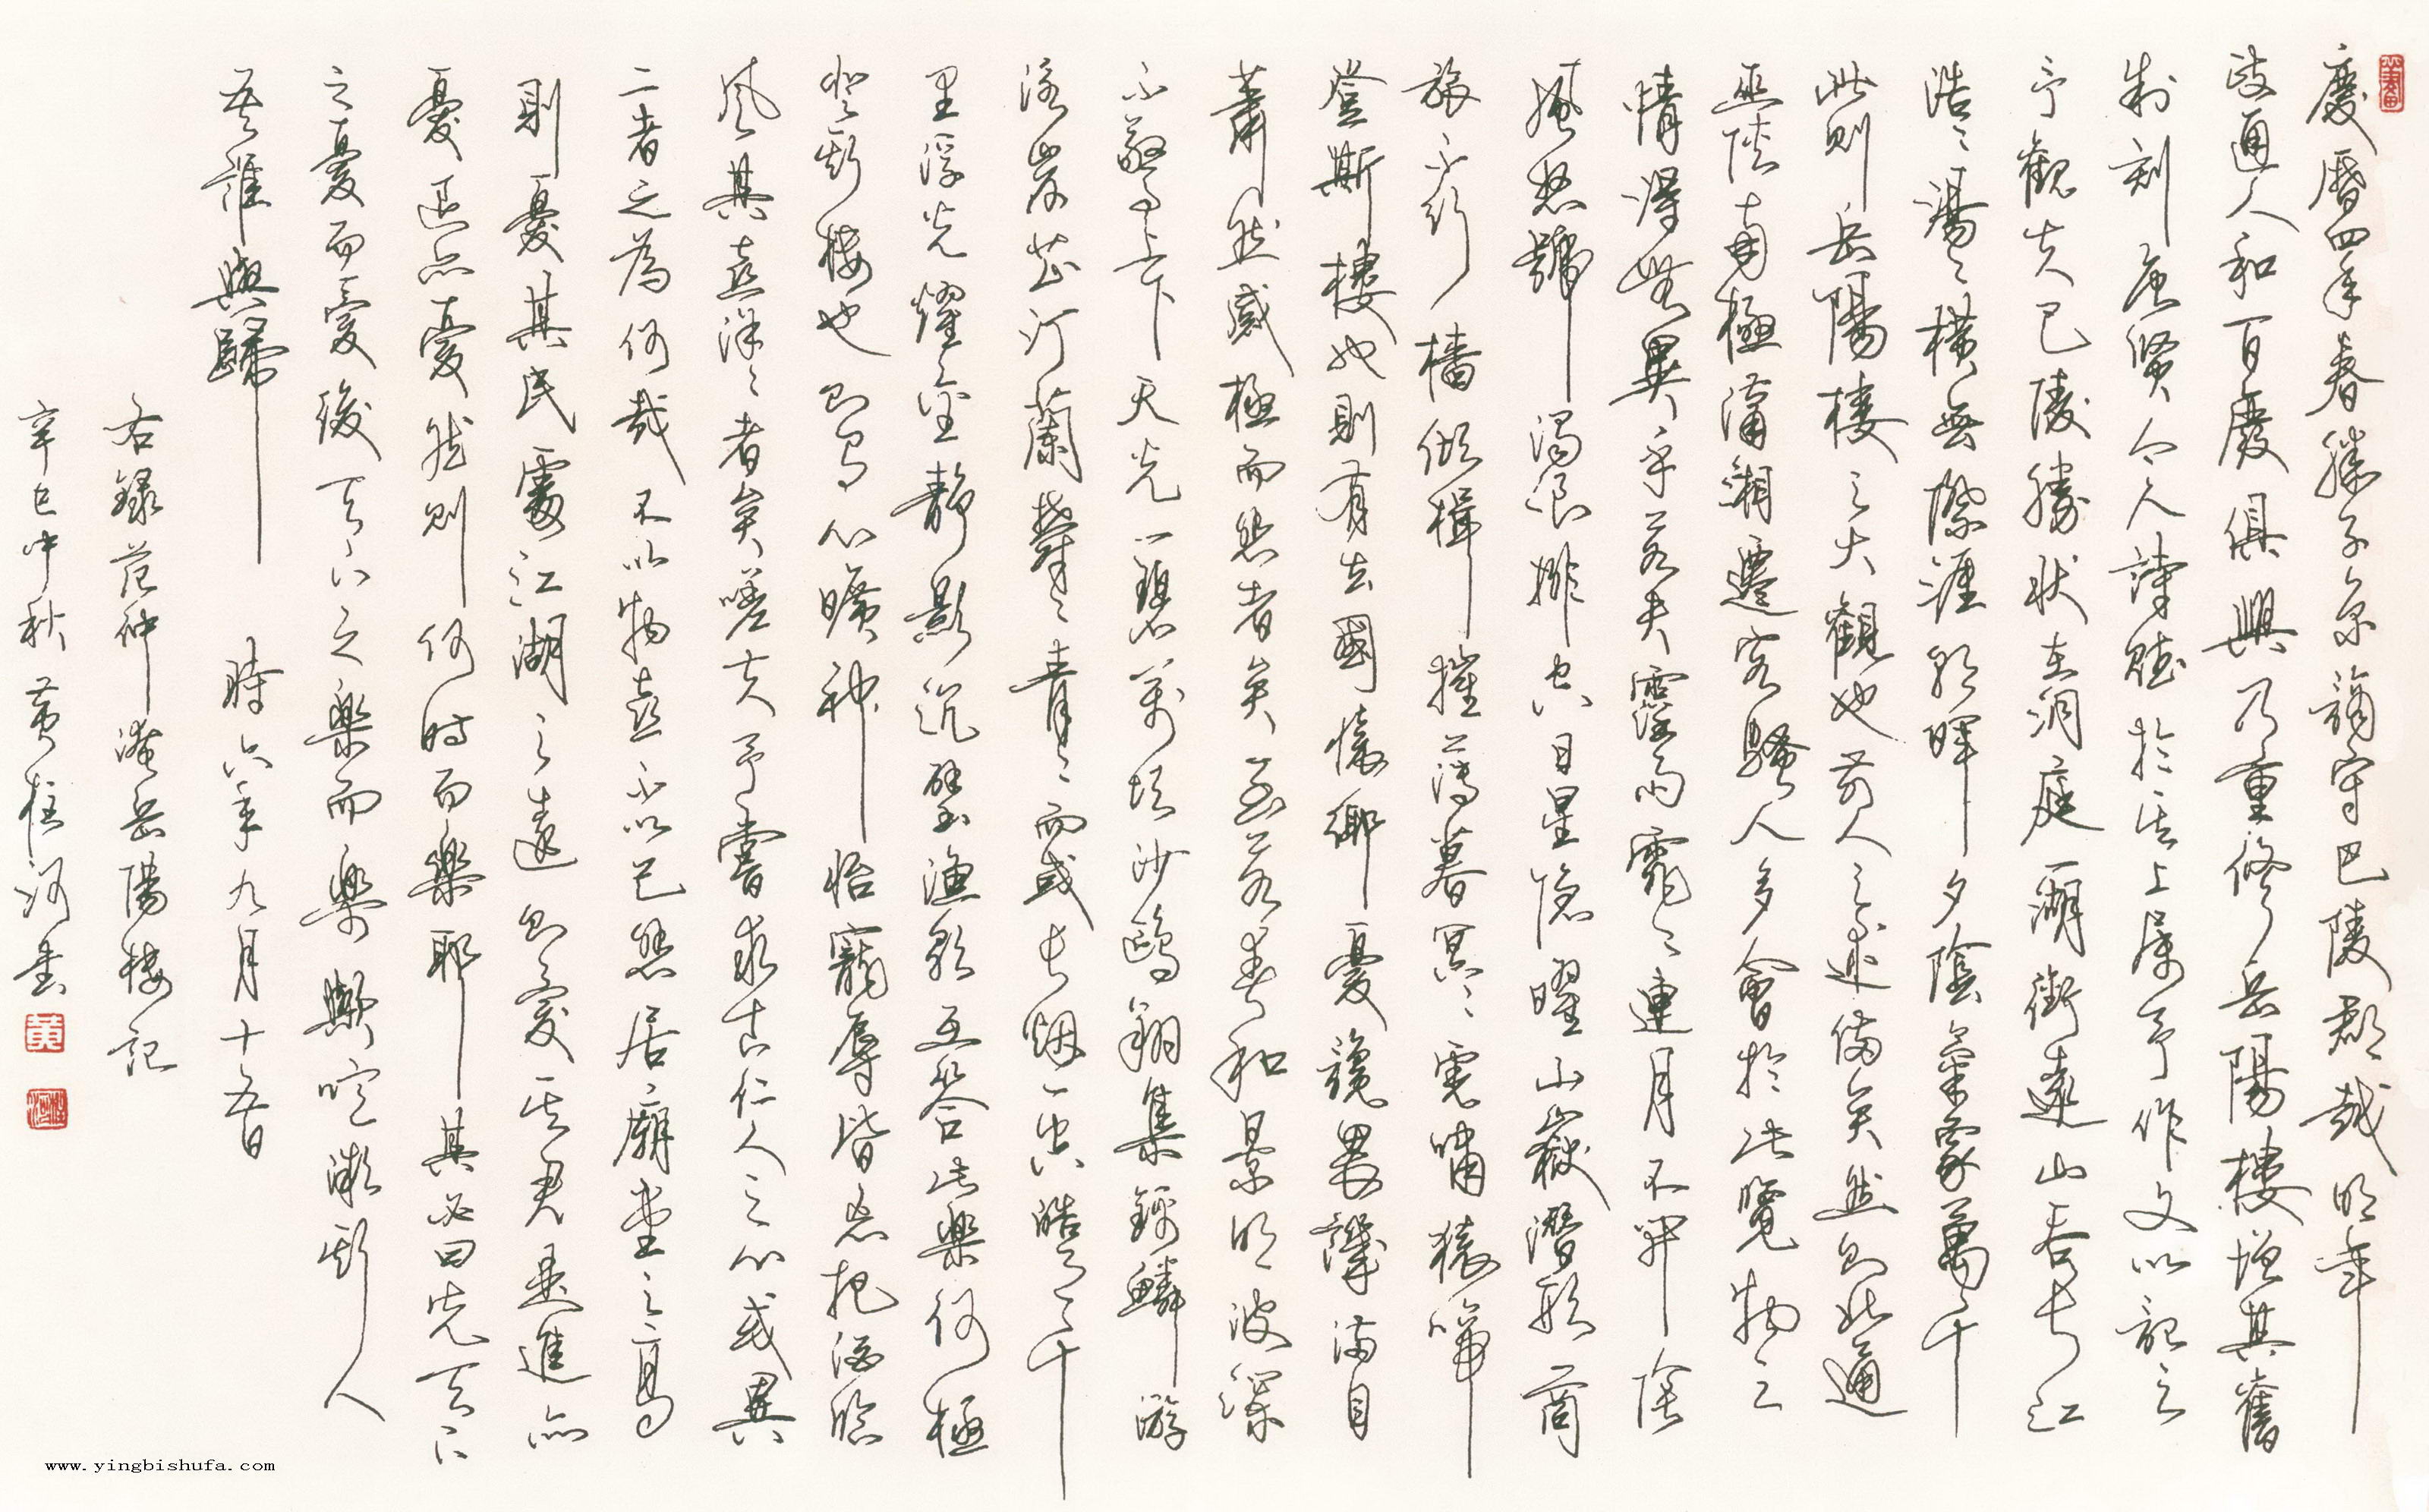 慶曆四年春滕子京謫守巴陵郡越明年
政通人和百廢俱興乃重修岳陽樓增其舊
制刻唐賢今人詩賦於其上屬予作文以記之
予觀夫巴陵勝狀在洞庭一湖銜遠山吞長江
浩浩湯湯橫無際涯朝暉夕陰氣象萬千
此則岳陽樓之大觀也前人之述備矣然則北通
巫陝南極瀟湘遷客騷人多會於此覽物之
情得無異乎若夫霪雨霏霏連月不開陰
風怒號濁浪排空日星隱曜山嶽潛形商
旅不行檣傾楫摧薄暮冥冥虎嘯猿啼
登斯樓也則有去國懷鄉憂讒畏譏滿目
蕭然感極而悲者矣至若春和景明波瀾
不驚上下天光一碧萬頃沙鷗翔集錦鱗游
泳岸芷汀蘭鬱鬱青青而或長煙一空皓月千
里浮光耀金靜影沉璧漁歌互答此樂何極
登斯樓也則有心曠神怡寵辱皆忘把酒臨
風其喜洋洋者矣嗟夫予嘗求古仁人之心或異
二者之為何哉不以物喜不以己悲居廟堂之高
則憂其民處江湖之遠則憂其君是進亦
憂退亦憂然則何時而樂耶其必曰先天下
之憂而憂後天下之樂而樂歟噫微斯人
吾誰與歸 時六年九月十五日
右錄范仲淹岳陽樓記
辛巳中秋黃桂河書
黃
www.yingbishufa.com